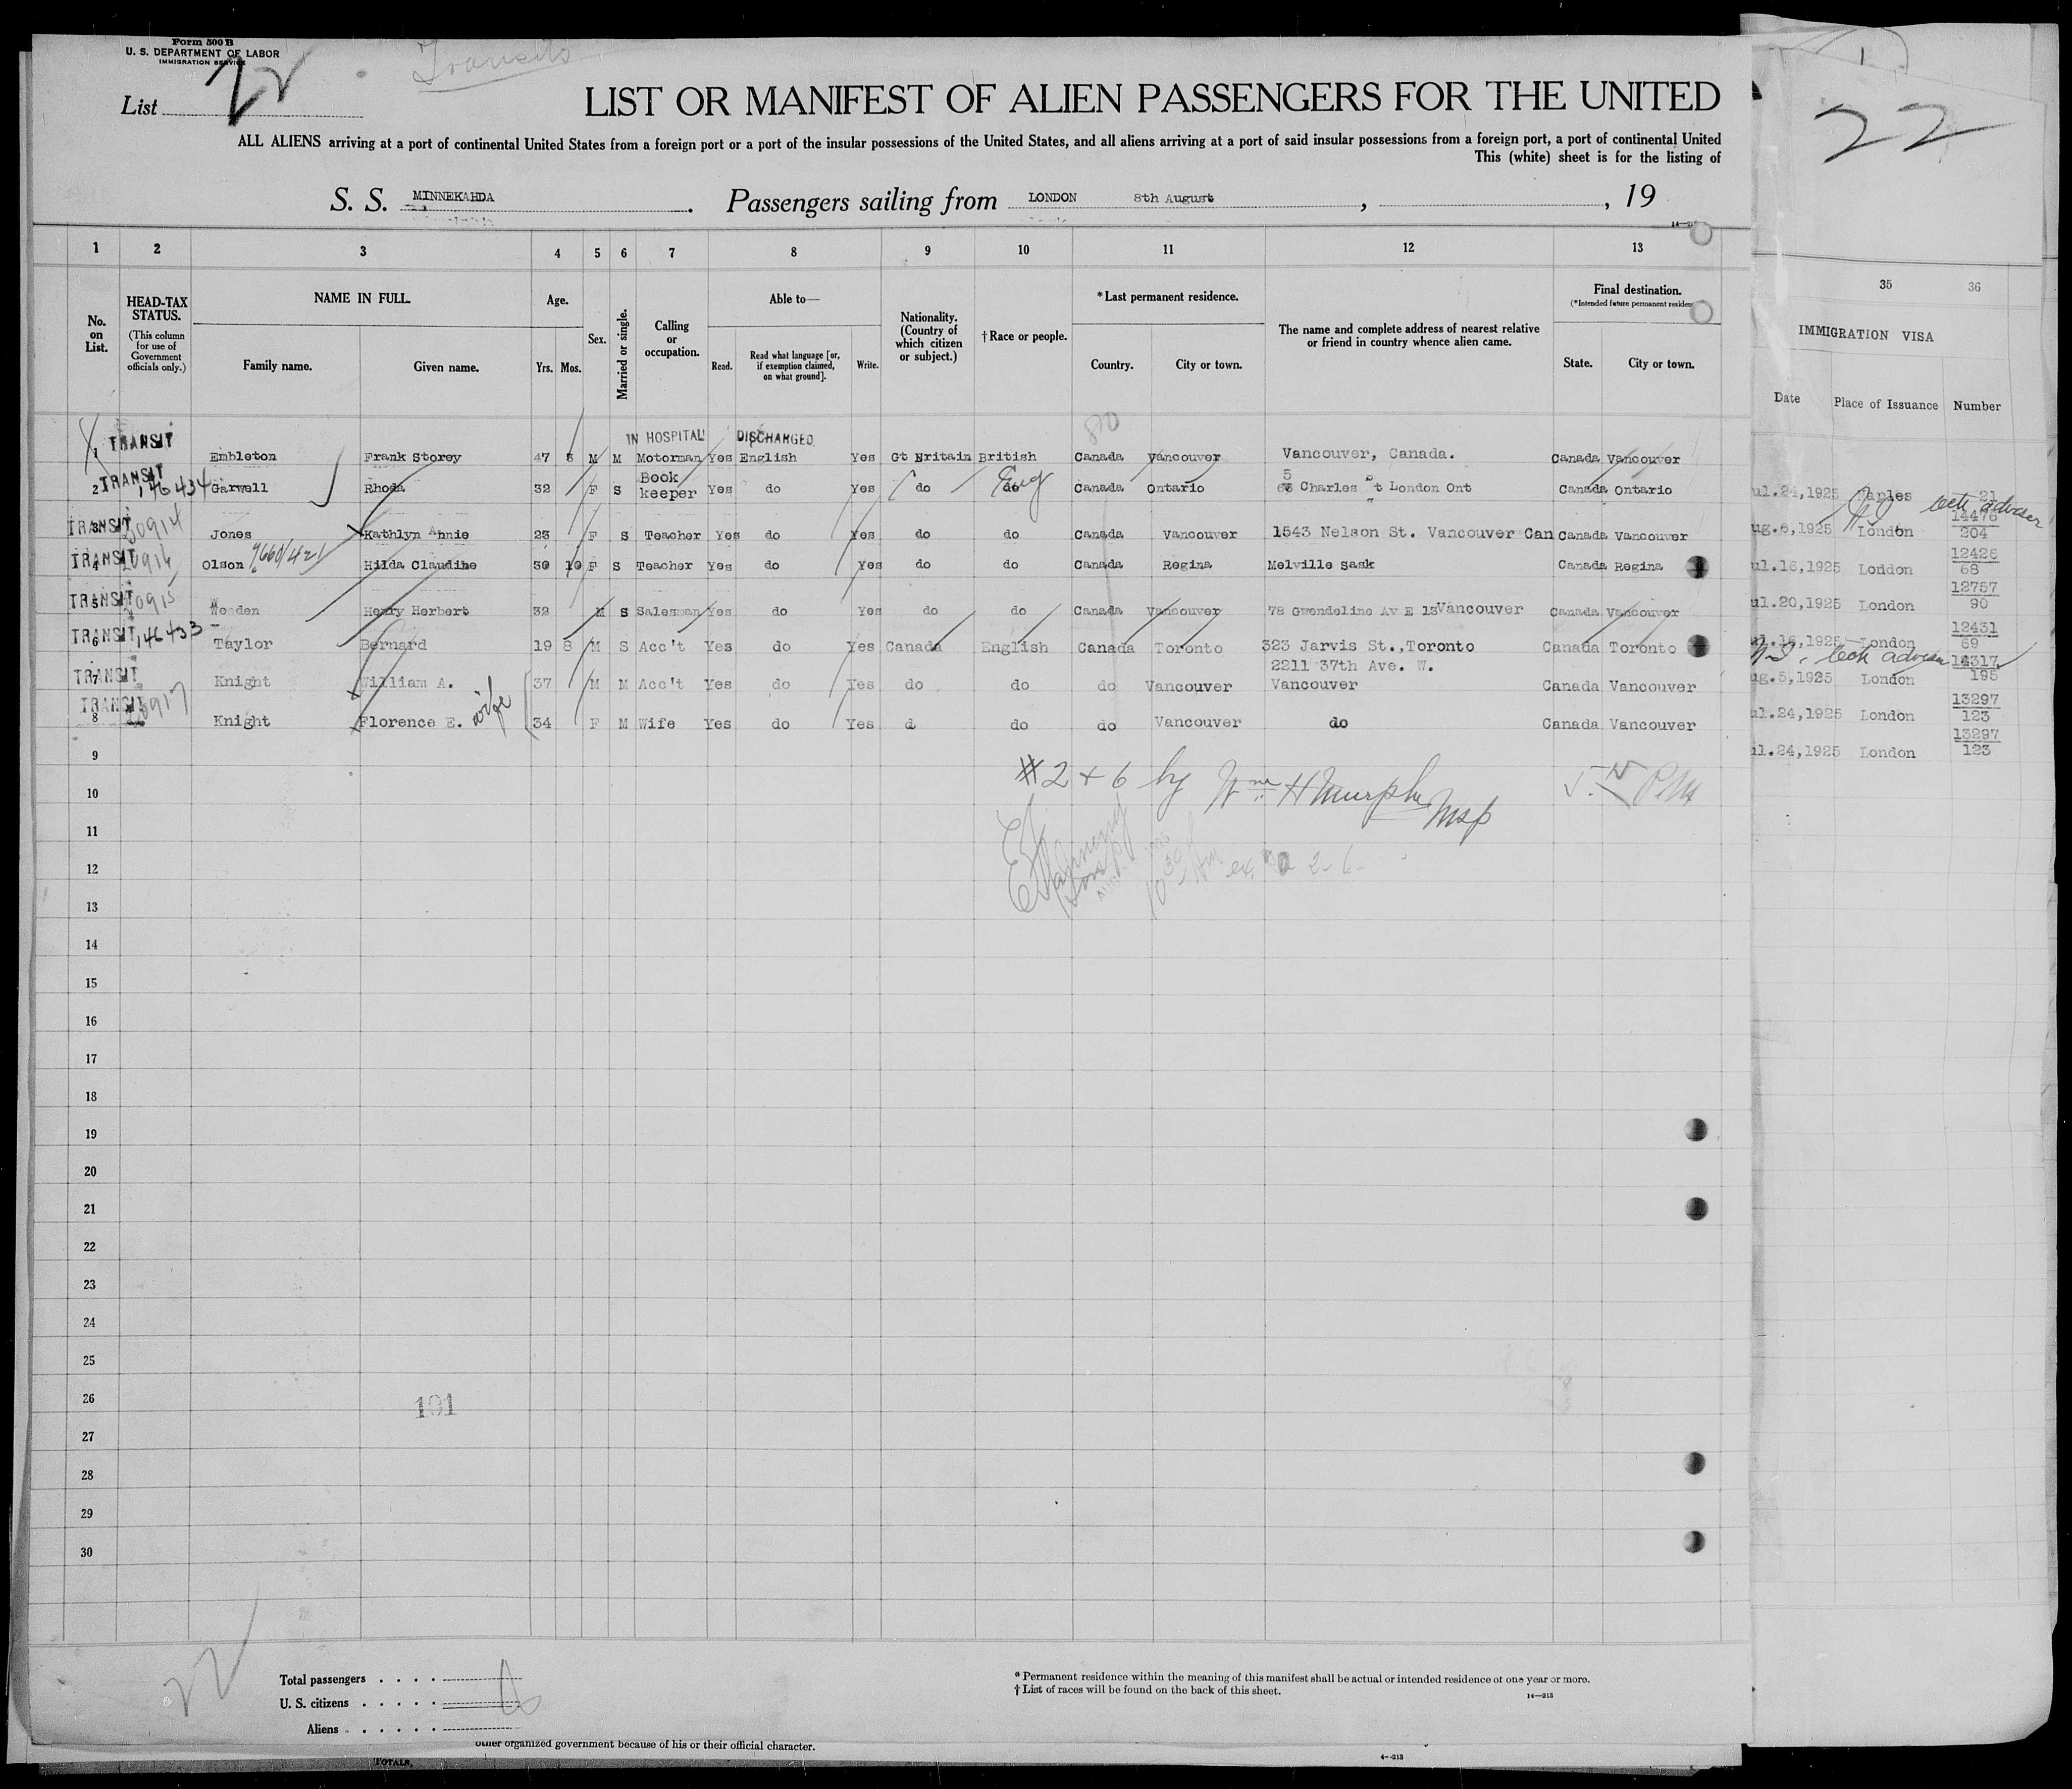 Form 500 B
U. S. DEPARTMENT OF LABOR
IMMIGRATION SERVICE
Transits
List 22
LIST OR MANIFEST OF ALIEN PASSENGERS FOR THE UNITED
ALL ALIENS arriving at a port of continental United States from a foreign port or a port of the insular possessions of the United States, and all aliens arriving at a port of said insular possessions from a foreign port, a port of continental United
This (white) sheet is for the listing of
S. S. MINNEKAHDA. Passengers sailing from LONDON 8th August , , 19
22
1 2 3 4 5 6 7 8 9 10 11 12 13 35 36
No. on List.
HEAD-TAX STATUS.
(This column for use of Government officials only.)
NAME IN FULL.
Family name. Given name.
Age.
Yrs. Mos.
Sex.
Married or single.
Calling or occupation.
Able to—
Read. Read what language [or, if exemption claimed, on what ground]. Write.
Nationality. (Country of which citizen or subject.)
†Race or people.
*Last permanent residence.
Country. City or town.
The name and complete address of nearest relative or friend in country whence alien came.
Final destination.
(*Intended future permanent residen
State. City or town.
IMMIGRATION VISA
Date Place of Issuance Number
IN HOSPITAL DISCHARGED
1 TRANSIT Embleton Frank Storey 47 M M Motorman Yes English Yes Gt Britain British Canada Vancouver Vancouver, Canada. Canada Vancouver
2 TRANSIT 146434 Garwell Rhoda 32 F S Book keeper Yes do Yes do do Eng Canada Ontario Charles St London Ont Canada Ontario
3 TRANSIT 20914 Jones Kathlyn Annie 23 F S Teacher Yes do Yes do do Canada Vancouver 1543 Nelson St. Vancouver Can Canada Vancouver
4 TRANSIT Olson Hilda Claudine 30 10 F S Teacher Yes do Yes do do Canada Regina Melville Sask Canada Regina
5 TRANSIT 20915 Weeden Henry Herbert 32 M S Salesman Yes do Yes do do Canada Vancouver 78 Gwendeline Av E 13 Vancouver Canada Vancouver
6 TRANSIT 146433 Taylor Bernard 19 8 M S Acc't Yes do Yes Canada English Canada Toronto 323 Jarvis St.,Toronto Canada Toronto
7 TRANSIT Knight William A. 37 M M Acc't Yes do Yes do do do Vancouver 2211 37th Ave. W. Vancouver Canada Vancouver
8 TRANSIT 20917 Knight Florence E. wife 34 F M Wife Yes do Yes d do do Vancouver do Canada Vancouver
ul.24,1925 Naples 21
ug.6,1925 London 14476 204
ul.16,1925 London 12426 68
ul.20,1925 London 12757 90
ul.16,1925 London 12431 69
ug.5,1925 London 14317 195
ul.24,1925 London 13297 123
ul.24,1925 London 13297 123
9
#2 + 6 by Wm H Murphy Insp
10
11
12
13
14
15
16
17
18
19
20
21
22
23
24
25
26
191
27
28
29
30
22
Total passengers
U. S. citizens
Aliens
* Permanent residence within the meaning of this manifest shall be actual or intended residence of one year or more.
† List of races will be found on the back of this sheet.
14—213
other organized government because of his or their official character.
4—213
TOTALS,